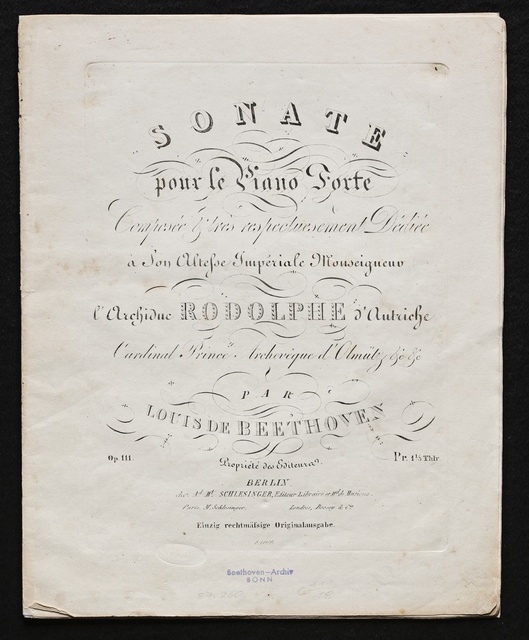 SONATE
pour le Piano Forte
Composée & très respectueusement Dédiée
à Son Altesse Impériale Monseigneur
l'Archiduc RODOLPHE d'Autriche
Cardinal Prince Archevèque d'Olmütz &c &c
PAR
LOUIS DE BEETHOVEN
Op. 111.
Propriété des Editeurs.
Pr. 1⅓ Thlr.
BERLIN
chez Ad. Mt. SCHLESINGER, Editeur Libraire et Md. de Musique.
Paris M. Schlesinger. Londres, Boosey & Co.
Einzig rechtmäſsige Originalausgabe.
Beethoven-Archiv
BONN